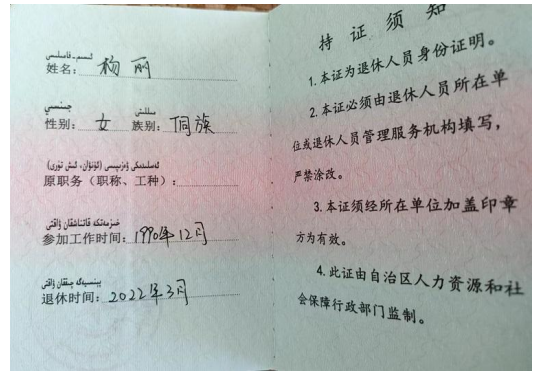 ئىسىم-فامىلىسى
姓名： 杨丽
جىنسىي مىللىتى
性别： 女 族别： 侗族
ئەسلىدىكى ۋەزىپىسى (ئۇنۋان، ئىش تۈرى)
原职务（职称、工种）：
خىزمەتكە قاتناشقان ۋاقتى
参加工作时间：1990年12月
پېنسىيەگە چىققان ۋاقتى
退休时间：2022年3月
持证须知
1.本证为退休人员身份证明。
2.本证必须由退休人员所在单
位或退休人员管理服务机构填写，
严禁涂改。
3.本证须经所在单位加盖印章
方为有效。
4.此证由自治区人力资源和社
会保障行政部门监制。